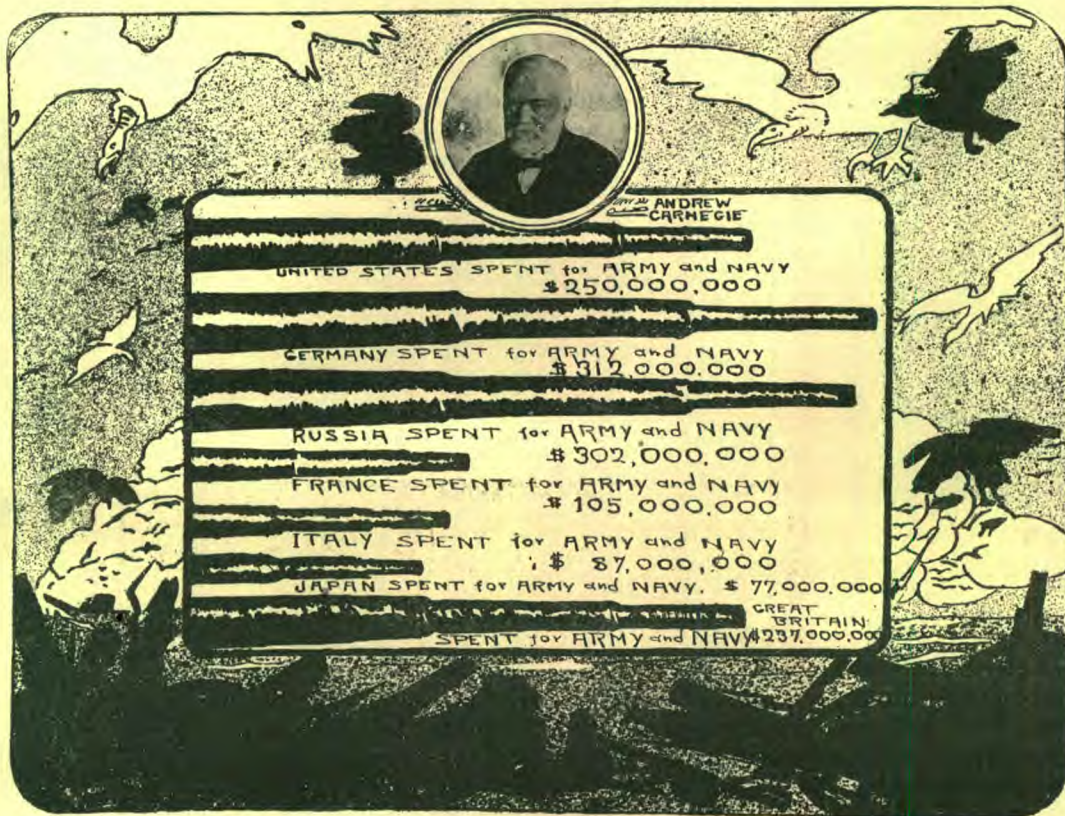 ANDREW
CARNEGIE
UNITED STATES SPENT for ARMY and NAVY
$250,000,000
GERMANY SPENT for ARMY and NAVY
$312,000,000
RUSSIA SPENT for ARMY and NAVY
$302,000,000
FRANCE SPENT for ARMY and NAVY
$105,000,000
ITALY SPENT for ARMY and NAVY
$ 87,000,000
JAPAN SPENT for ARMY and NAVY. $ 77,000,000
GREAT
BRITAIN
SPENT for ARMY and NAVY $237,000,000